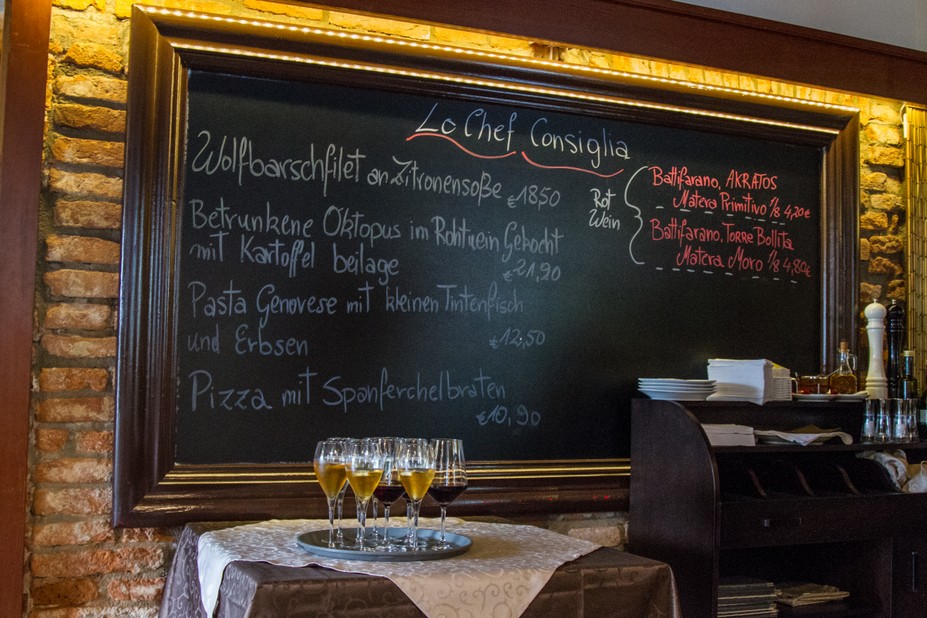 Lo Chef Consiglia
Wolfbarschfilet an Zitronensoße €18,50
Betrunkene Oktopus im Rohtwein Gekocht
mit Kartoffel beilage €21,90
Pasta Genovese mit kleinen Tintenfisch
und Erbsen €12,50
Pizza mit Spanferchelbraten
€10,90
Rot
Wein
Battifarano, AKRATOS
Matera Primitivo 1/8 4,20€
Battifarano, Torre Bollita
Matera Moro 1/8 4,80€